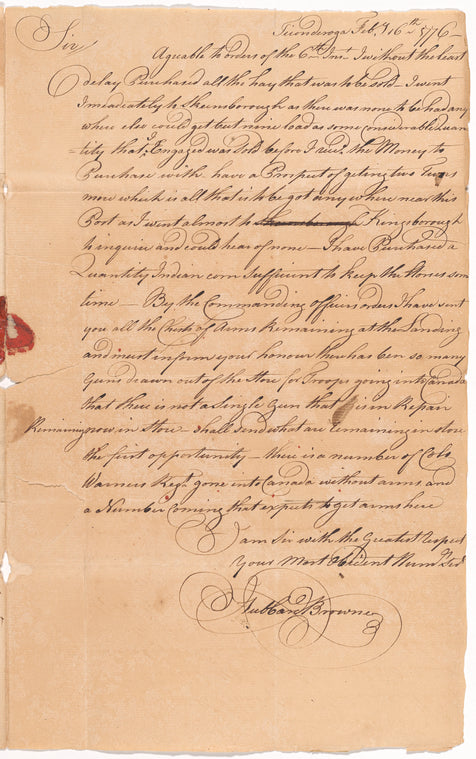 Ticonderoga Feb.y 16th 1776 –
Sir
Agreable to orders of the 6th Inst. I without the least
delay Purchased all the hay that was to be sold – I went
Imediately to Skeensborough as there was none to be had any
where else could get but nine load as some considerable Quan
=tity that I Engaged was sold before I recd. the Money to
Purchase with have a Prospect of geting two Tuns
more which is all that is to be got any where near this
Post as I went almost to Kingsborough
to inquire and could hear of none – I have Purchased a
Quantity Indian corn sufficient to keep the Horses som
time – By the Commanding officers orders I have sent
you all the Chests of Arms Remaining at the Landing
and must inform your honour there has ben so many
Guns drawn out of the Store for Troops going into Canada
that there is not a Single Gun that is in Repair
Remaining now in Store shall send what are remaining in store
the first opportunity – there is a number of Cols
Warners Regt. gone into Canada without arms and
a Number Coming that expects to get arms here
I am Sir with the Greatest Respect
Your Most Obedient Humble Servt
Hubbard Browne